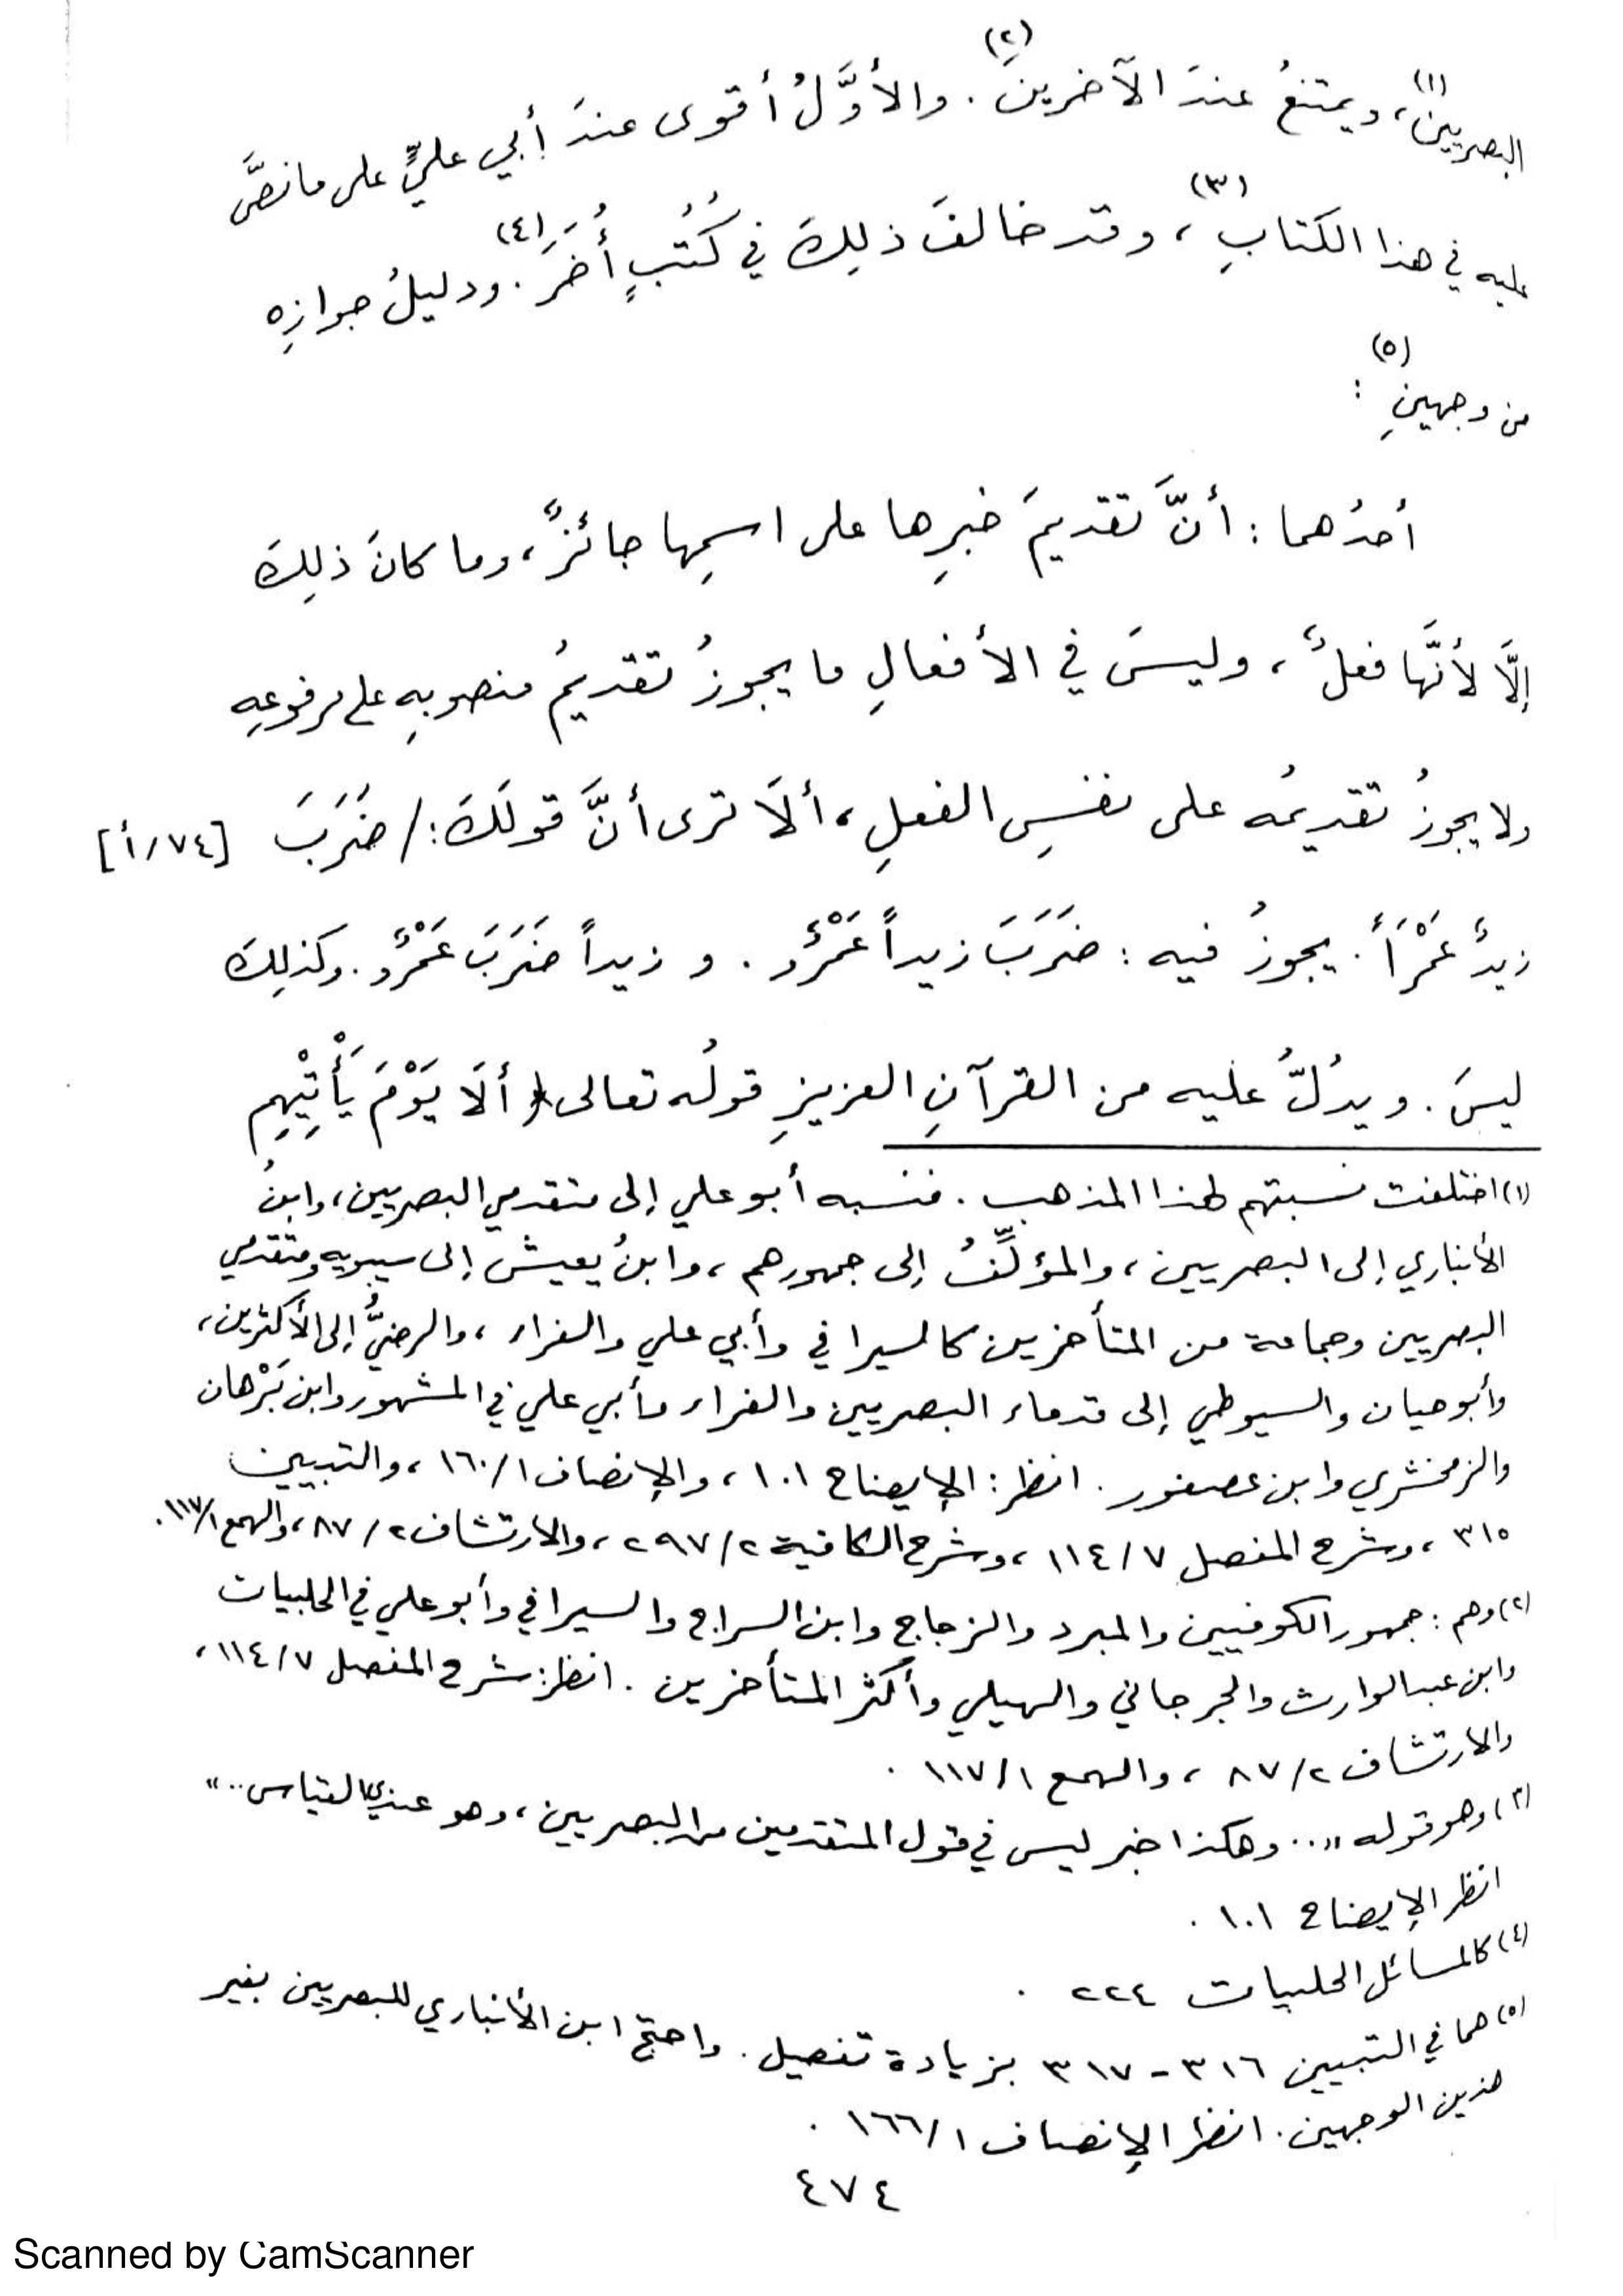 البصريين(١)، ويمتنعُ عندَ الآخرينَ(٢). والأوَّلُ أقوى عندَ أبي عليٍّ على ما نصَّ
عليه في هذا الكتابِ(٣)، وقد خالفَ ذلِكَ في كُتُبٍ أُخَرَ(٤). ودليلُ جوازِه
من وجهينِ(٥) :
أحدُهما : أنَّ تقديمَ خبرِها على اسمِها جائزٌ، وما كانَ ذلِكَ
إلَّا لأنَّها فعلٌ، وليسَ في الأفعالِ ما يجوزُ تقديمُ منصوبِهِ على مرفوعِهِ
ولا يجوزُ تقديمُه على نفسِ الفعلِ، ألَا ترى أنَّ قولَكَ: / ضَرَبَ [٧٤/أ]
زيدٌ عَمْرَاً. يجوزُ فيه : ضَرَبَ زيداً عَمْرٌو . و زيداً ضَرَبَ عَمْرٌو. وكذلِكَ
ليسَ . ويدُلُّ عليه من القرآنِ العزيزِ قولُه تعالى ﴿ ألَا يَوْمَ يَأْتِيْهِم
(١) اختلفت نسبتهم لهذا المذهب . فنسبه أبو علي إلى متقدمي البصريين، وابنُ
الأنباري إلى البصريين، والمؤلِّفُ إلى جمهورهم، وابنُ يعيش إلى سيبويه ومتقدمي
البصريين وجماعة من المتأخرين كالسيرافي وأبي علي والفراء، والرضيُّ إلى الأكثرين،
وأبو حيان والسيوطي إلى قدماء البصريين والفراء وأبي علي في المشهور وابن بَرْهان
والزمخشري وابن عصفور . انظر : الإيضاح ١٠١، والإنصاف ١/١٦٠، والتبيين
٣١٥، وشرح المفصل ٧/١١٤، وشرح الكافية ٢/٢٩٧، والارتشاف ٢/٨٧، والهمع ١/١١٧.
(٢) وهم : جمهور الكوفيين والمبرد والزجاج وابن السراج والسيرافي وأبو علي في الحلبيات
وابن عبد الوارث والجرجاني والسهيلي وأكثر المتأخرين . انظر: شرح المفصل ٧/١١٤،
والارتشاف ٢/٨٧، والهمع ١/١١٧ .
(٣) وهو قوله " .. وهكذا خبر ليس في قول المتقدمين من البصريين، وهو عندي القياس .. "
انظر الإيضاح ١٠١ .
(٤) كالمسائل الحلبيات ٢٢٤ .
(٥) هما في التبيين ٣١٦ - ٣١٧ بزيادة تفصيل . واحتج ابن الأنباري للبصريين بغير
هذين الوجهين . انظر الإنصاف ١/١٦٦ .
٤٧٤
Scanned by CamScanner